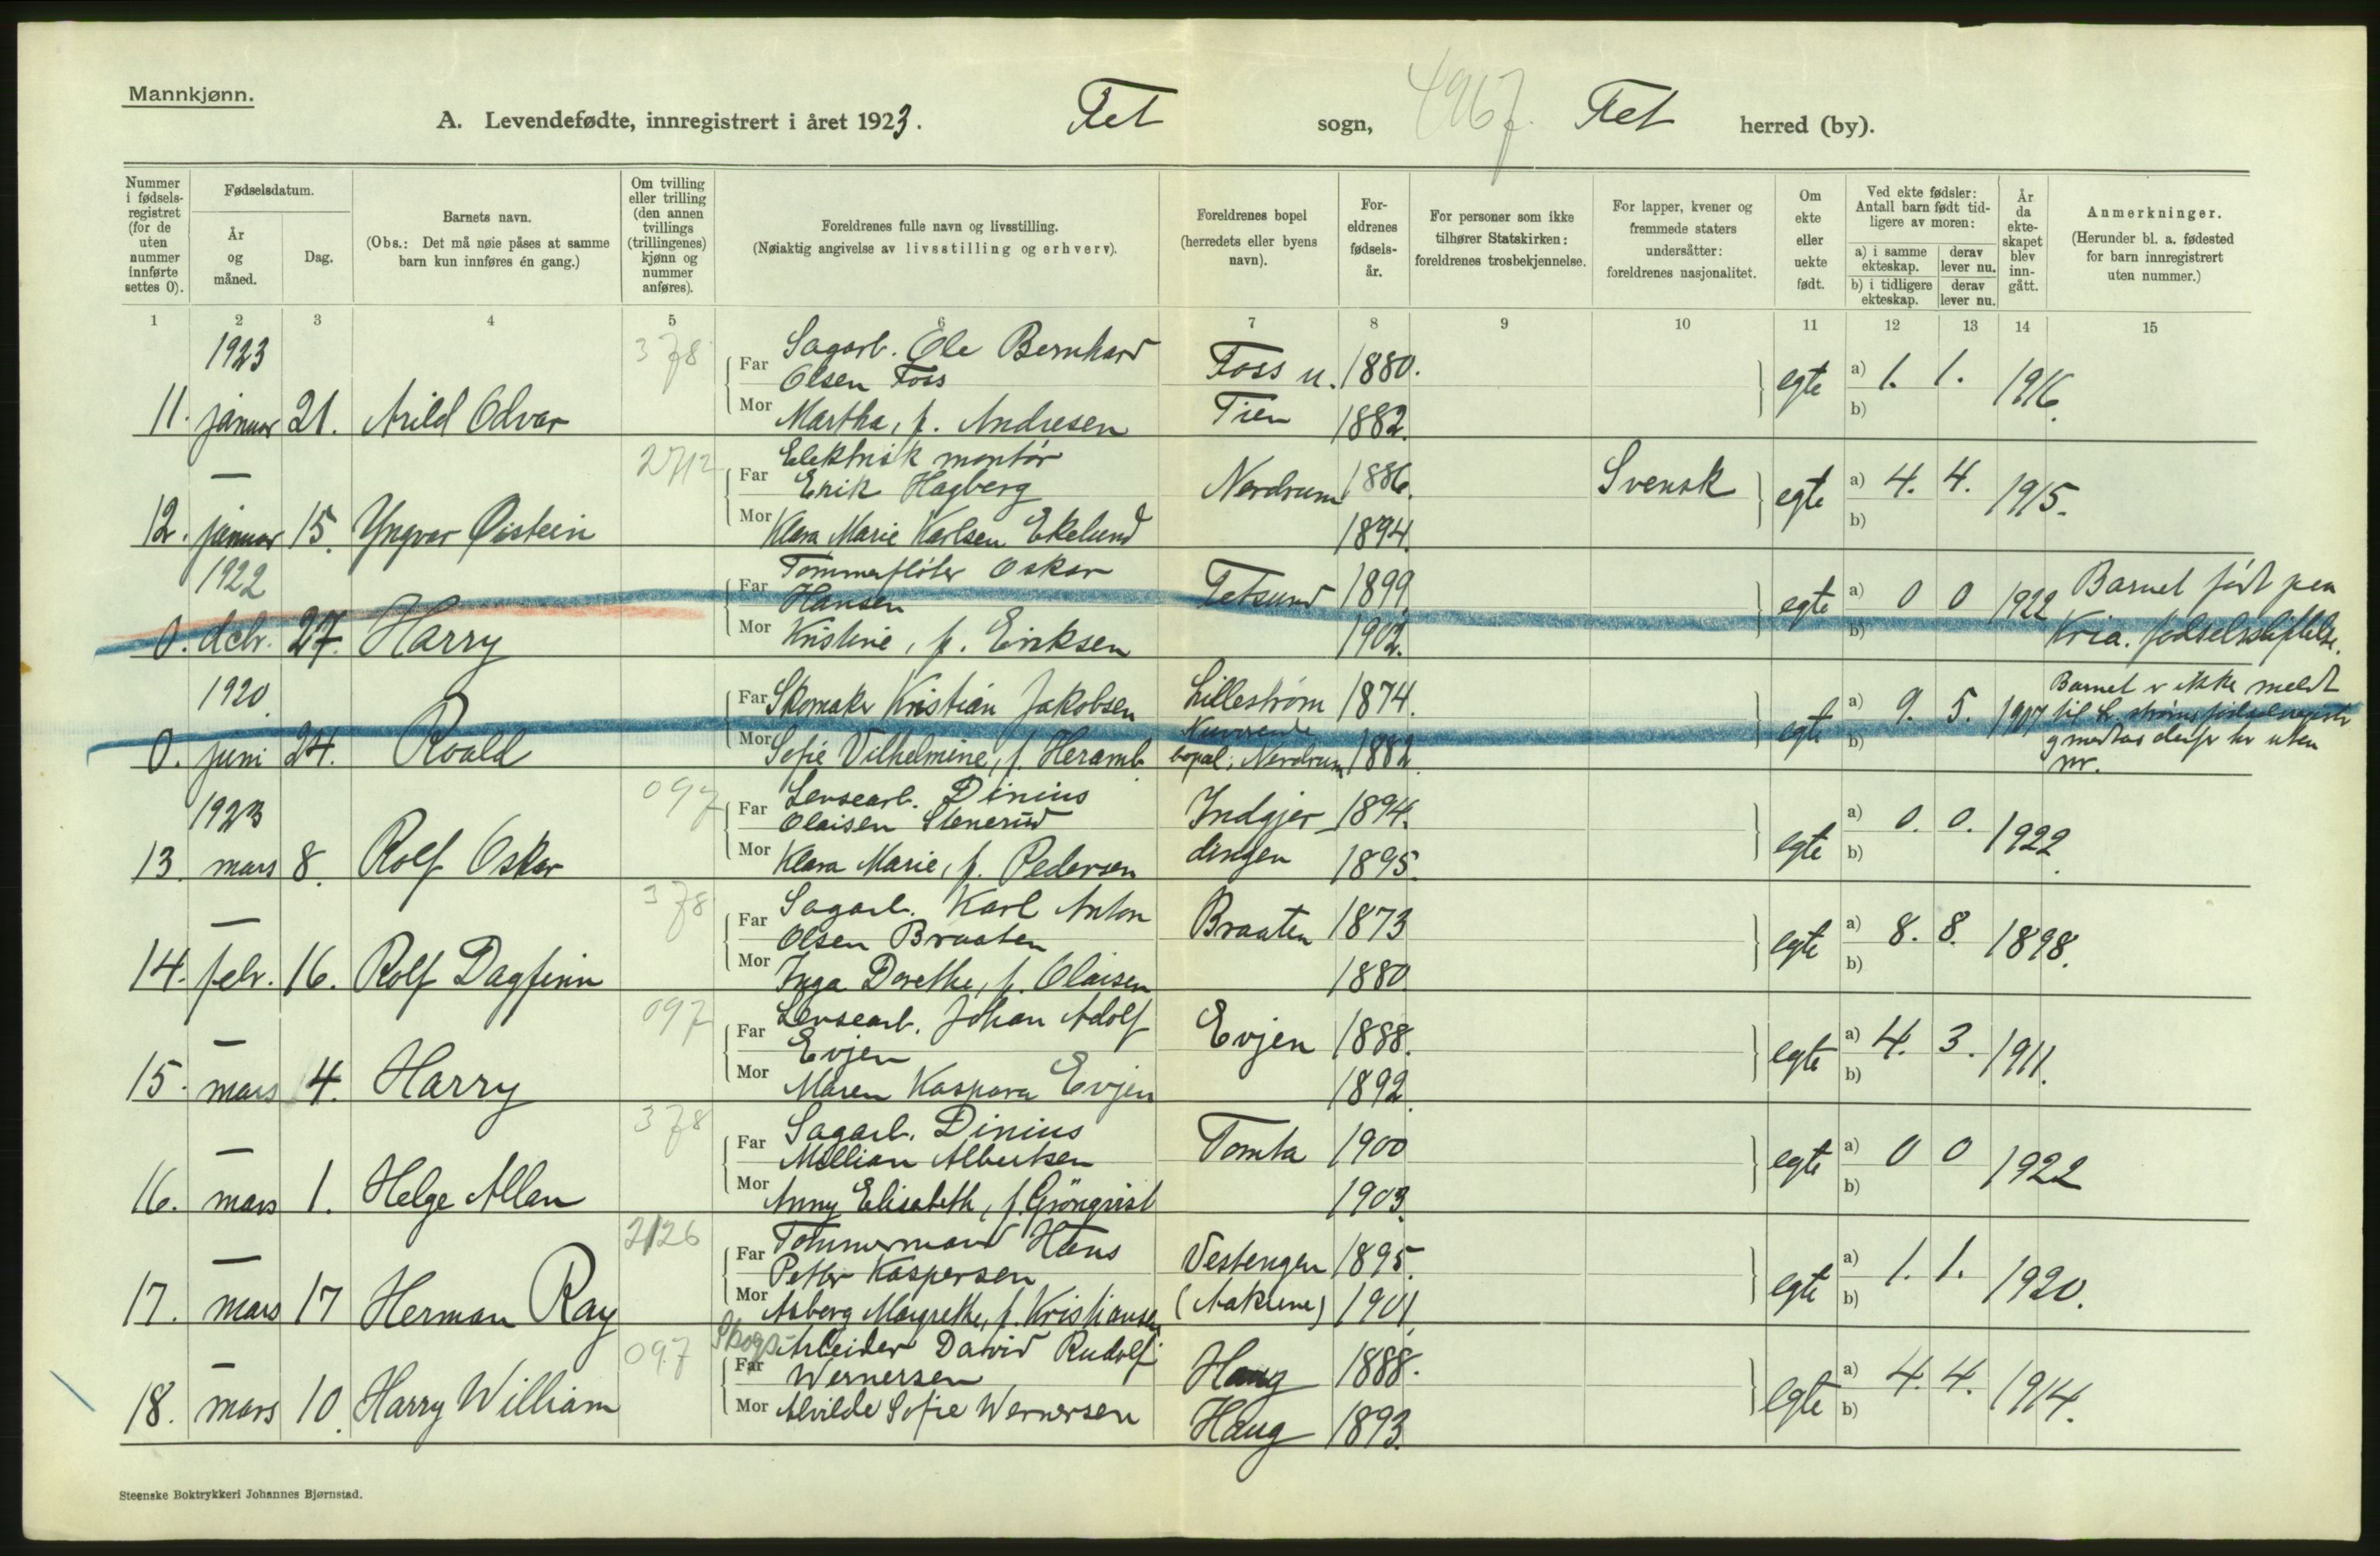 Mannkjønn.
A. Levendefødte, innregistrert i året 1923. Fet sogn, Fet herred (by).
Nummer i fødsels-registret (for de uten nummer innførte settes 0).
Fødselsdatum.
År og måned.
Dag.
Barnets navn.
(Obs.: Det må nøie påses at samme barn kun innføres én gang.)
Om tvilling eller trilling (den annen tvillings (trillingenes) kjønn og nummer anføres).
Foreldrenes fulle navn og livsstilling.
(Nøiaktig angivelse av livsstilling og erhverv).
Foreldrenes bopel (herredets eller byens navn).
For-eldrenes fødsels-år.
For personer som ikke tilhører Statskirken: foreldrenes trosbekjennelse.
For lapper, kvener og fremmede staters undersåtter: foreldrenes nasjonalitet.
Om ekte eller uekte født.
Ved ekte fødsler: Antall barn født tid-ligere av moren:
a) i samme ekteskap. derav lever nu.
b) i tidligere ekteskap. derav lever nu.
År da ekte-skapet blev inn-gått.
Anmerkninger.
(Herunder bl. a. fødested for barn innregistrert uten nummer.)
1 2 3 4 5 6 7 8 9 10 11 12 13 14 15
1923 378 Far Sagarb. Ole Bernhard Olsen Foss Foss u. 1880.
11. januar 21. Arild Odvar Mor Martha, f. Andresen Tien 1882. egte a) 1. 1. 1916. b)
— 2712 Far Elektrisk montör Erik Hagberg Nerdrum 1886. Svensk
12. januar 15. Yngvar Øistein Mor Klara Marie Karlsen Ekelund 1894. egte a) 4. 4. 1915. b)
1922 Far Tømmerfløter Oskar Hansen Fetsund 1899.
0. debr. 27. Harry Mor Kristine, f. Eriksen 1902. egte a) 0 0 1922 b) Barnet født paa Kria. fødselsstiftelse.
1920. Far Skomaker Kristian Jakobsen Lillestrøm 1874.
0. juni 24. Roald Mor Sofie Vilhelmine, f. Heramb Nuværende bopæl: Nerdrum 1882. egte a) 9. 5. 1907 b) Barnet er ikke meldt til L.strøms fødselsregister g medtas derfor her uten nr.
1923 097 Far Lensearb. Dinius Olaisen Stenerud Indgjer- 1894.
13. mars 8. Rolf Oskar Mor Klara Marie, f. Pedersen dingen 1895. egte a) 0. 0. 1922. b)
— 378 Far Sagarb. Karl Anton Olsen Braaten Braaten 1873
14. febr. 16. Rolf Dagfinn Mor Inga Dorethe, f. Olaisen 1880. egte a) 8. 8. 1898. b)
— 097 Far Lensearb. Johan Adolf Evjen Evjen 1888.
15. mars 4. Harry Mor Maren Kaspara Evjen 1892. egte a) 4. 3. 1911. b)
— 378 Far Sagarb. Dinius Millian Albertsen Tomta 1900
16. mars 1. Helge Allan Mor Anny Elisabeth, f. Grönqvist 1903. egte a) 0 0 1922 b)
— 2126 Far Tømmermand Hans Petter Kaspersen Vestengen 1895.
17. mars 17 Herman Ray Mor Aaberg Margrethe, f. Kristiansen (Aakrene) 1901. egte a) 1. 1. 1920. b)
— 097 Far Skogs-Arbeider David Rudolf Wernersen Haug 1888.
18. mars 10. Harry William Mor Alvilde Sofie Wernersen Haug 1893. egte a) 4. 4. 1914. b)
Steenske Boktrykkeri Johannes Bjørnstad.